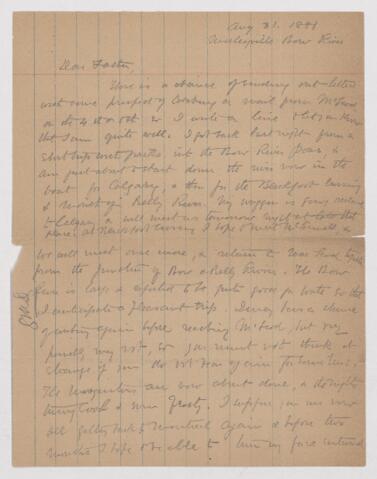 Aug 31. 1881
Bow River
Dear Father,
There is a chance of sending out letter
with some prospect of catching a mail from McLeod
so I write a line to let you know
that I am quite well. I got back last night from a
short trip with into the Bow River Pass, &
am just about to start down the river now in the
boat for Calgary, & then for the Blackfoot Crossing
& mouth of Belly River. My waggon is going
to Calgary & will meet us tomorrow night at that
place. at Blackfoot Crossing I hope to meet McConnell, &
we will meet once more, & return to
from the junction of Bow & Belly Rivers. The Bow
River is large & reported to be quite good for boats so that
I anticipate a pleasant trip. I may have a chance
of writing again before reaching McLeod, but very
possibly may not, so you must not think it
strange if you do not hear again for some time.
The mosquitoes are now about done, & the nights
being cool & even frosty. I suppose you are now
all getting back to Montreal again & before two
months I hope to be able to turn my face